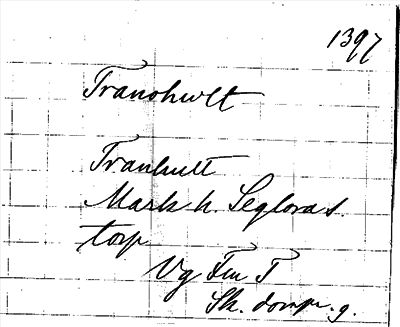 1397
Tranohult
Tranhult
Mark h. Seglora s.
torp
Vg Fm T
Sk. domk. g.